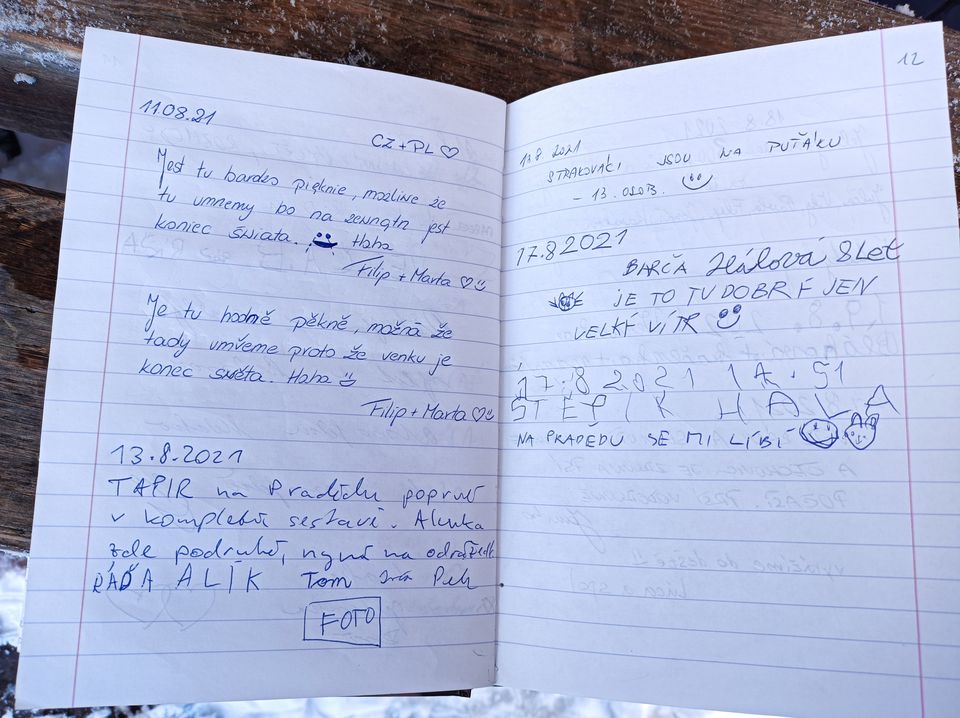 11.08.21
CZ + PL ♡
Jest tu bardzo pięknie, możliwe że
tu umrzemy bo na zewnątrz jest
koniec świata. Haha
Filip + Marta ♡☺
Je tu hodně pěkně, možná že
tady umřeme proto že venku je
konec světa. Haha ☺
Filip + Marta ♡☺
13.8.2021
TAPIR na Pradědu poprvé
v kompletní sestavě. Alenka
zde podruhé, nyní na odrážedle
RÁĎA ALÍK Tom Petr
FOTO
12
13.8 2021
STRAKOVÁCI JSOU NA PUŤÁKU
– 13. OSOB. ☺
17.8.2021
BARČA Hálová 8 Let
JE TO TU DOBRÉ JEN
VELKÝ VÍTR ☺
17.8 2021 14.51
ŠTĚPÍK HÁLA
NA PRADĚDU SE MI LÍBÍ